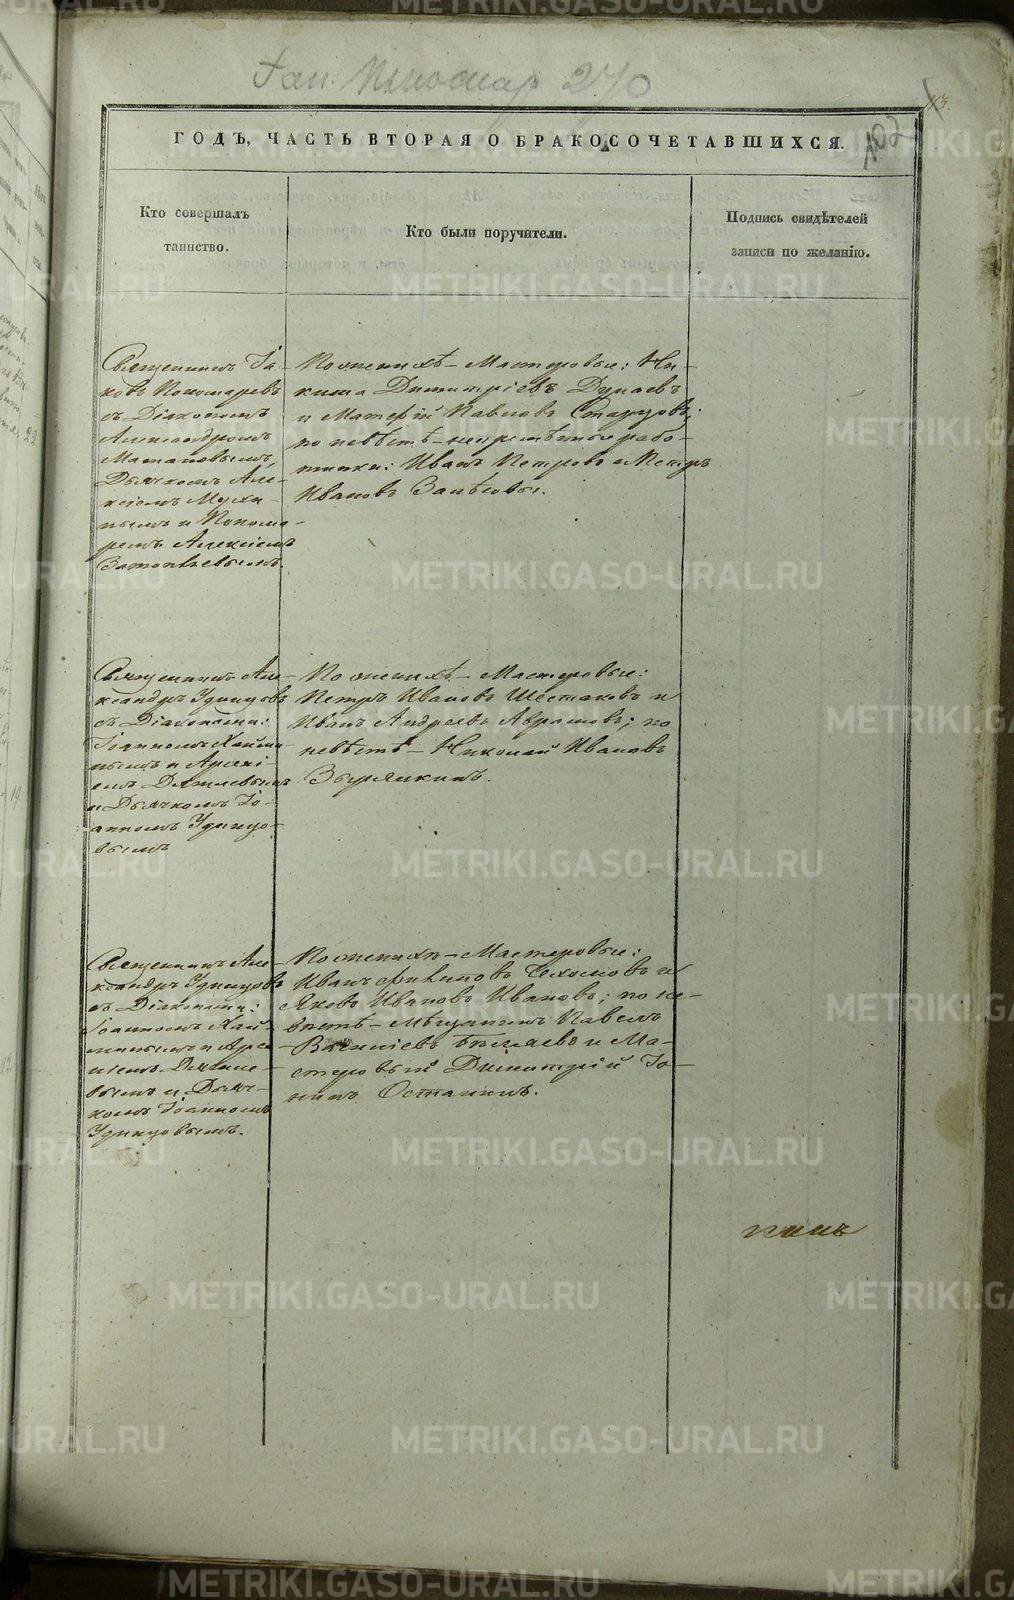 270
113.
102
ГОДЪ, ЧАСТЬ ВТОРАЯ О БРАКОСОЧЕТАВШИХСЯ.
Кто совершалъ
таинство.
Кто были поручители.
Подпись свидѣтелей
записи по желанію.
Священникъ Іа-
ковъ Пономаревъ
съ Діакономъ
Александромъ
Дьячкомъ Але-
ксіемъ Мухи-
нымъ и Понома-
ремъ Алексіемъ
По женихѣ – Мастеровые: Ни-
кита Димитріевъ Дунаевъ
и Матѳій Павловъ Старцовъ;
по невѣстѣ – непремѣнные рабо-
тники: Иванъ Петровъ и Петръ
Ивановъ
Священникъ Але-
ксандръ Удинцовъ
съ Діаконами:
Іоанномъ
нымъ и Арсені-
емъ Дягилевымъ
и Дьячкомъ Іо-
анномъ Удинцо-
вымъ
По женихѣ – Мастеровые:
Петръ Ивановъ Шестаковъ и
Иванъ Андреевъ Аврамовъ; по
невѣстѣ – Николай Ивановъ
Зырянкинъ.
Священникъ Але-
ксандръ Удинцовъ
съ Діаконами:
Іоанномъ
и Арсе-
ніемъ Дягиле-
вымъ и Дьяч-
комъ Іоанномъ
Удинцовымъ.
По женихѣ – Мастеровые:
Иванъ Филиповъ и
Яковъ Ивановъ Ивановъ; по не-
вѣстѣ – Мѣщанинъ Павелъ
Бѣляевъ и Ма-
стеровый Димитрій Іо-
нинъ Останинъ.
METRIKI.GASO-URAL.RU